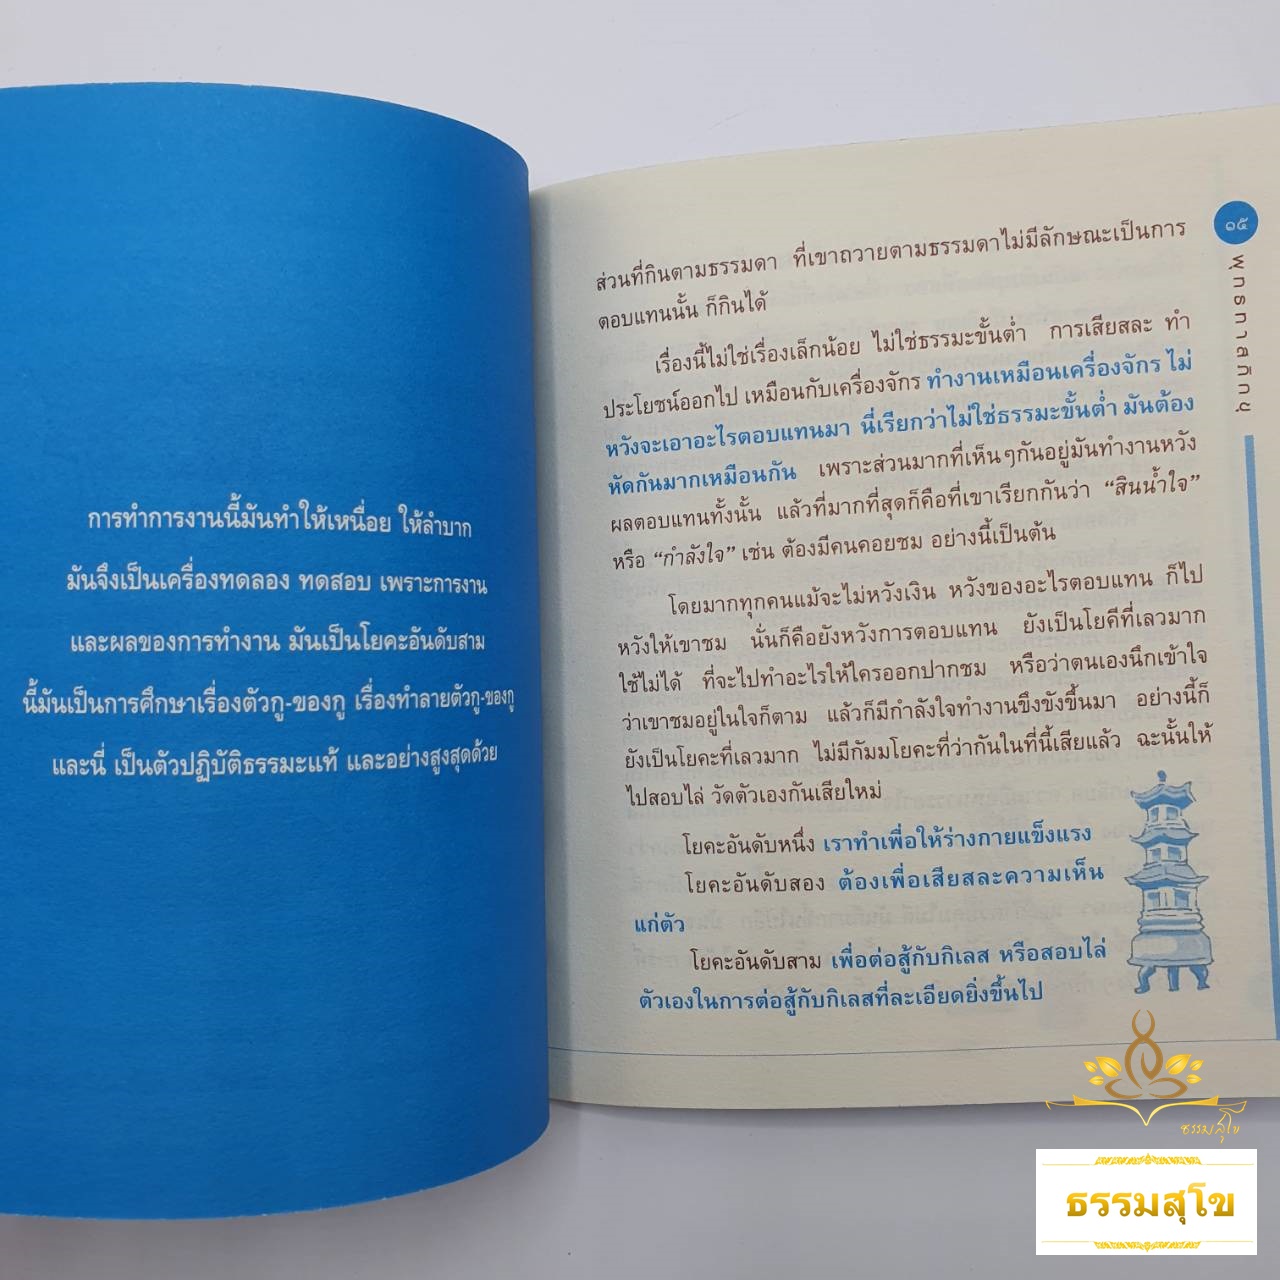 การทำการงานนี้มันทำให้เหนื่อย ให้ลำบาก
มันจึงเป็นเครื่องทดลอง ทดสอบ เพราะการงาน
และผลของการทำงาน มันเป็นโยคะอันดับสาม
นี้มันเป็นการศึกษาเรื่องตัวกู-ของกู เรื่องทำลายตัวกู-ของกู
และนี่ เป็นตัวปฏิบัติธรรมะแท้ และอย่างสูงสุดด้วย
๑๕
พุทธทาสภิกขุ
ส่วนที่กินตามธรรมดา ที่เขาถวายตามธรรมดาไม่มีลักษณะเป็นการ
ตอบแทนนั้น ก็กินได้
เรื่องนี้ไม่ใช่เรื่องเล็กน้อย ไม่ใช่ธรรมะขั้นต่ำ การเสียสละ ทำ
ประโยชน์ออกไป เหมือนกับเครื่องจักร ทำงานเหมือนเครื่องจักร ไม่
หวังจะเอาอะไรตอบแทนมา นี่เรียกว่าไม่ใช่ธรรมะขั้นต่ำ มันต้อง
หัดกันมากเหมือนกัน เพราะส่วนมากที่เห็นๆกันอยู่มันทำงานหวัง
ผลตอบแทนทั้งนั้น แล้วที่มากที่สุดก็คือที่เขาเรียกกันว่า “สินน้ำใจ”
หรือ “กำลังใจ” เช่น ต้องมีคนคอยชม อย่างนี้เป็นต้น
โดยมากทุกคนแม้จะไม่หวังเงิน หวังของอะไรตอบแทน ก็ไป
หวังให้เขาชม นั่นก็คือยังหวังการตอบแทน ยังเป็นโยคีที่เลวมาก
ใช้ไม่ได้ ที่จะไปทำอะไรให้ใครออกปากชม หรือว่าตนเองนึกเข้าใจ
ว่าเขาชมอยู่ในใจก็ตาม แล้วก็มีกำลังใจทำงานขึงขังขึ้นมา อย่างนี้ก็
ยังเป็นโยคะที่เลวมาก ไม่มีกัมมโยคะที่ว่ากันในที่นี้เสียแล้ว ฉะนั้นให้
ไปสอบไล่ วัดตัวเองกันเสียใหม่
โยคะอันดับหนึ่ง เราทำเพื่อให้ร่างกายแข็งแรง
โยคะอันดับสอง ต้องเพื่อเสียสละความเห็น
แก่ตัว
โยคะอันดับสาม เพื่อต่อสู้กับกิเลส หรือสอบไล่
ตัวเองในการต่อสู้กับกิเลสที่ละเอียดยิ่งขึ้นไป
ธรรมสุโข
ธรรมสุโข